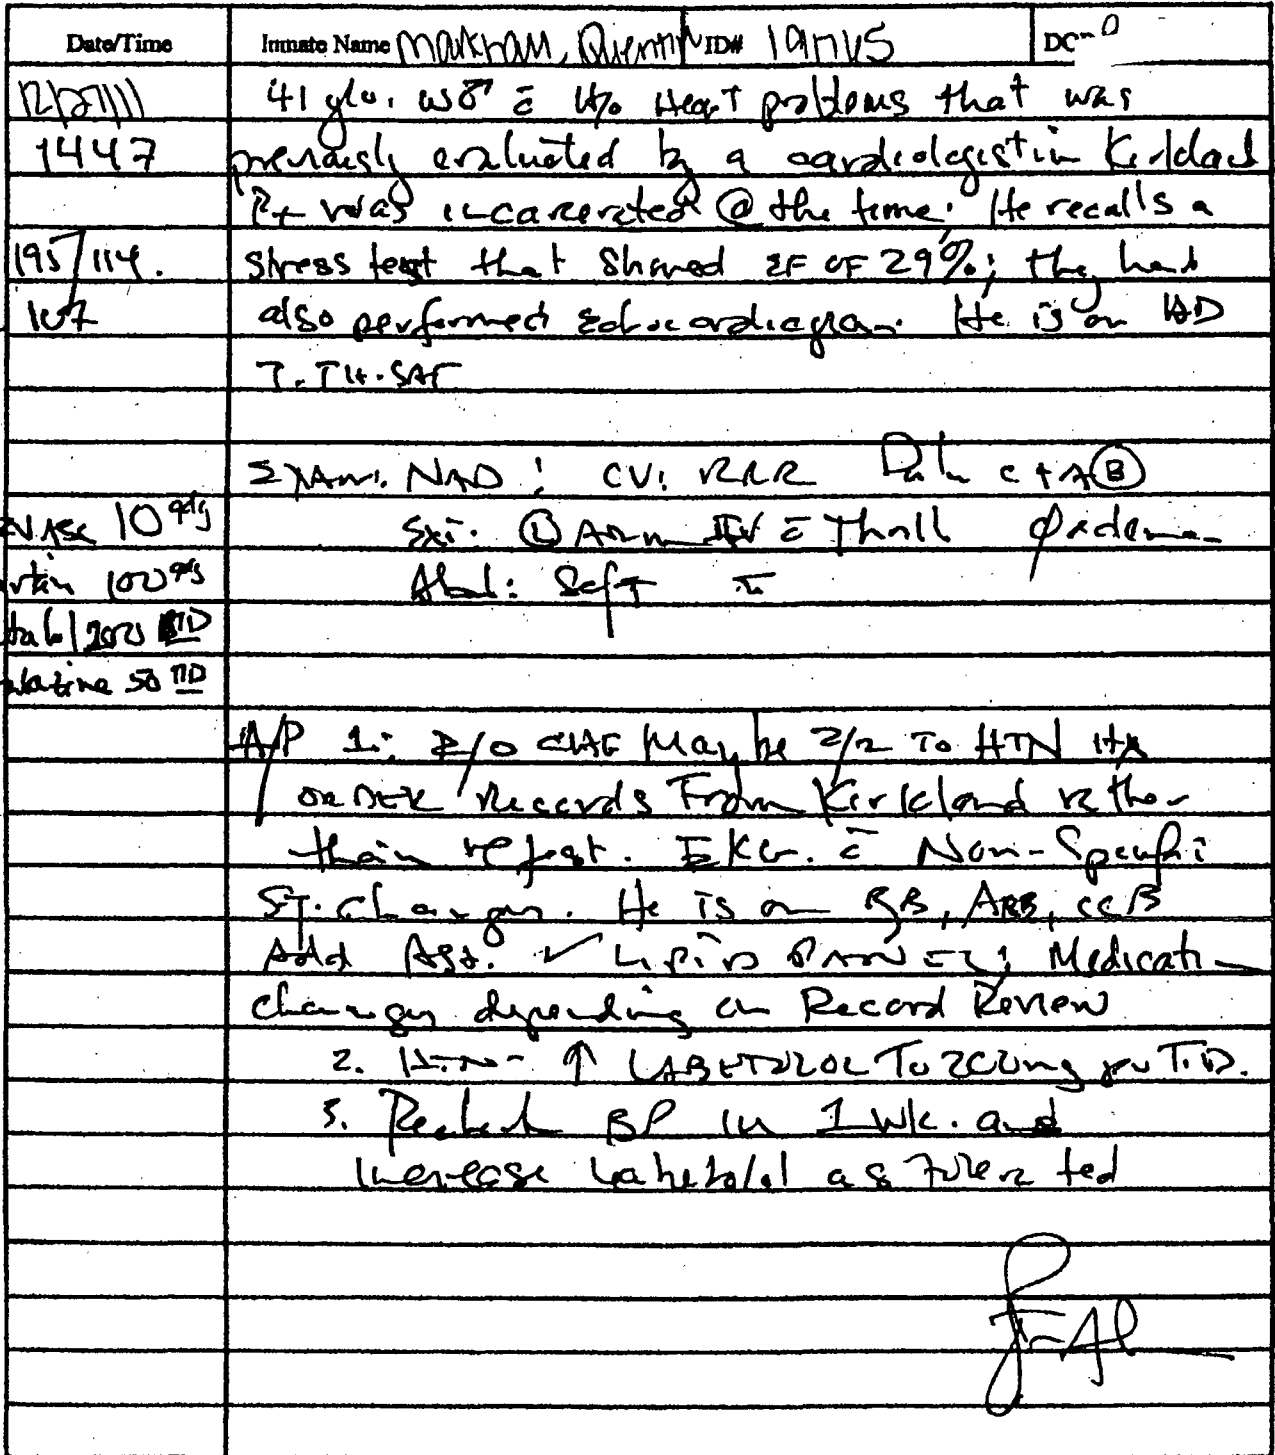 Date/Time Inmate Name Markham, Quentin ID# 191745 DC-0
12/27/11 41 y/o. w♂ c̄ H/o Heart problems that was
1447 previously evaluated by a cardiologist in Kirkland
Pt was incarcerated @ the time. He recalls a
195/114. stress test that showed EF of 29%; they had
107 also performed echocardiogram. He is on HD
T. TH. SAT
Exam: NAD; CV: RRR Pulm CTA Ⓑ
Norvasc 10 qdy Ext: Ⓛ Arm AV c̄ Thrill Ø edema
rtan 100 qdy Abd: Soft
tabl 200 BID
50 TID
A/P 1: R/O CHF May be 2/2 To HTN Hx
order records From Kirkland rather
than repeat. EKG. c̄ Non-Specific
ST. changes. He is on BB, ARB, CCB
Add ASA. ✓ Lipid PANEL; Medication
changes depending on Record Review
2. HTN - ↑ LABETALOL To 200mg po TID.
3. Recheck BP in 1 wk. and
increase labetalol as tolerated